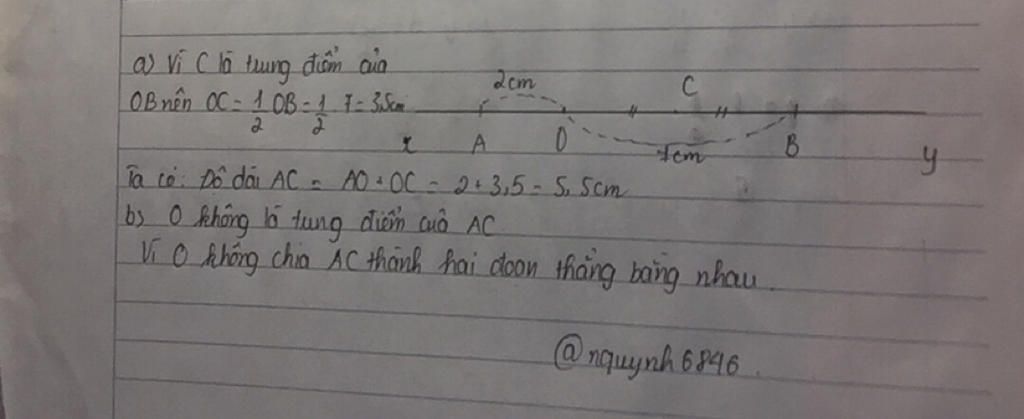 a) Vì C là trung điểm của
OB nên OC = 1/2 OB = 1/2 7 = 3,5cm
2cm
C
x A O B y
7cm
Ta có: Độ dài AC = AO + OC = 2 + 3,5 = 5,5cm
b) O không là trung điểm của AC
Vì O không chia AC thành hai đoạn thẳng bằng nhau.
@nquynh6846.